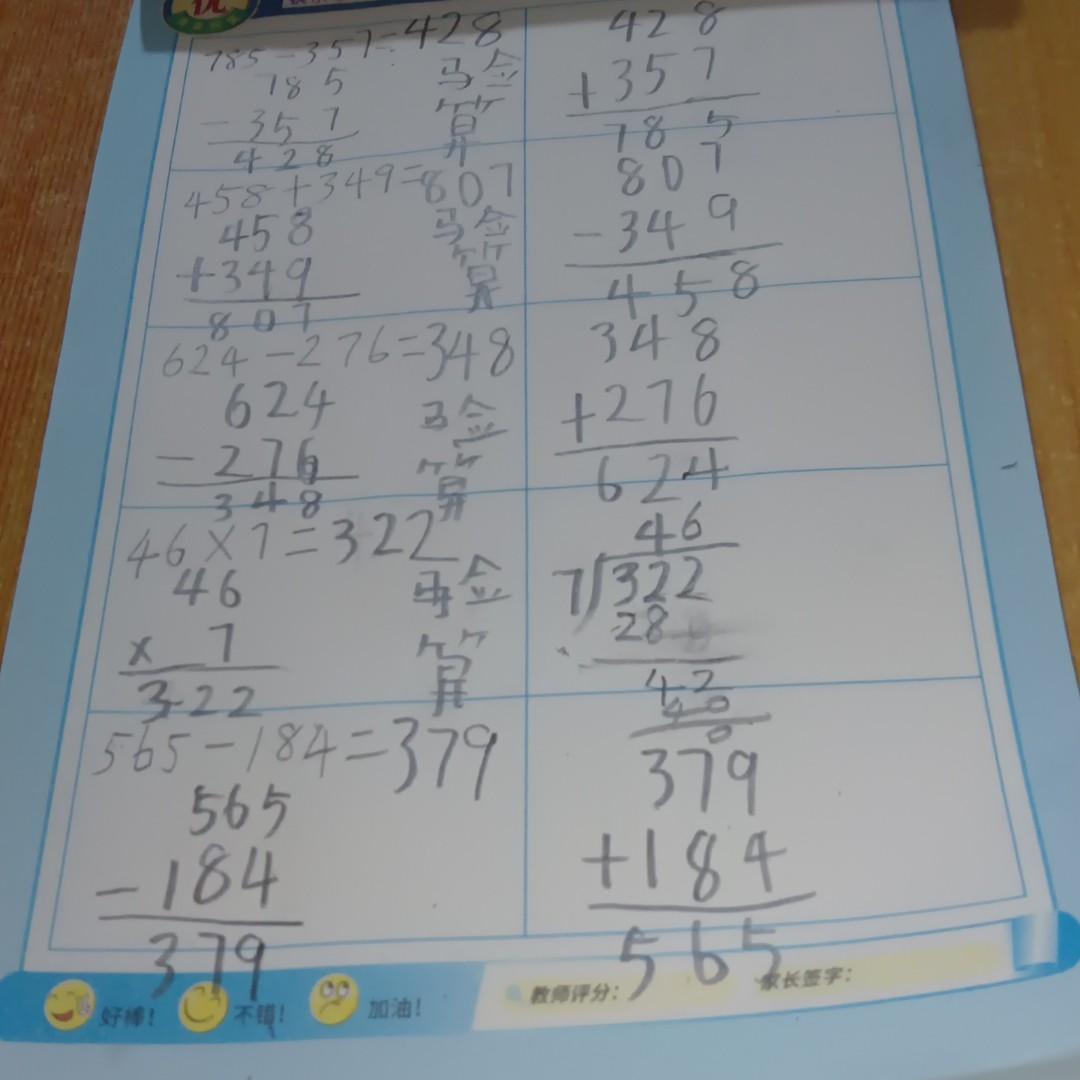 785-357=428
785
-357
428
验算
428
+357
785
458+349=807
458
+349
807
验算
807
-349
458
624-276=348
624
-276
348
验算
348
+276
624
46×7=322
46
× 7
322
验算
46
7)322
28
42
0
565-184=379
565
-184
379
379
+184
565
好棒!
不错!
加油!
教师评分:
家长签字: